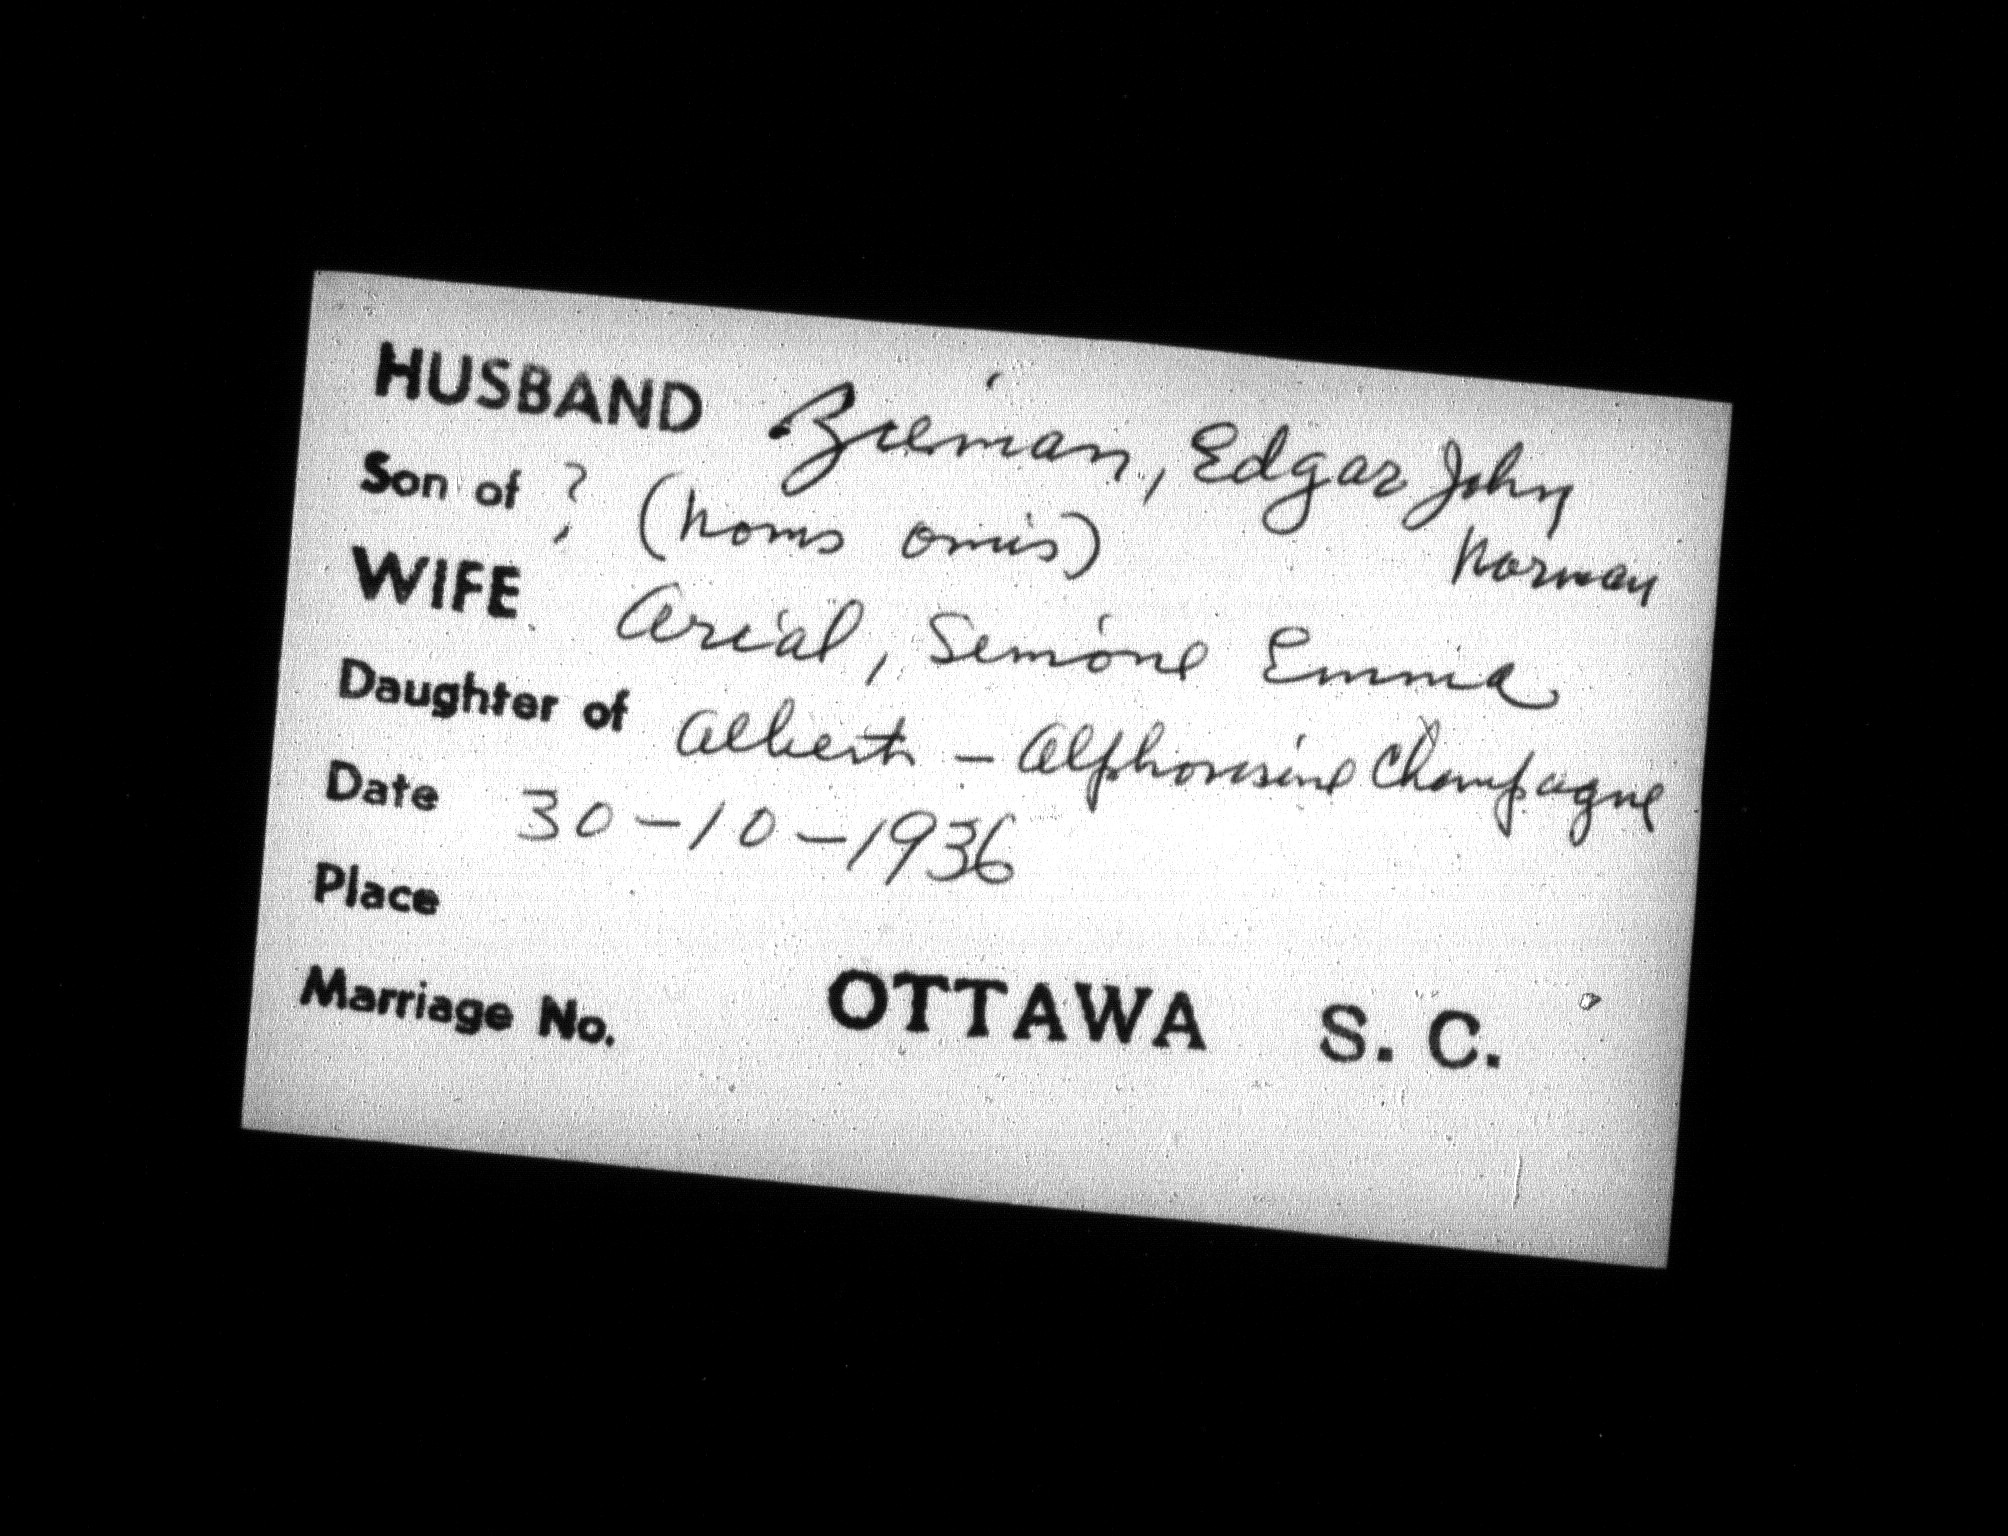 HUSBAND Zieman, Edgar John
Norman
Son of ? (noms omis)
WIFE Arial, Simone Emma
Daughter of Albert - Alphonsine Champagne
Date 30-10-1936
Place
OTTAWA S. C.
Marriage No.